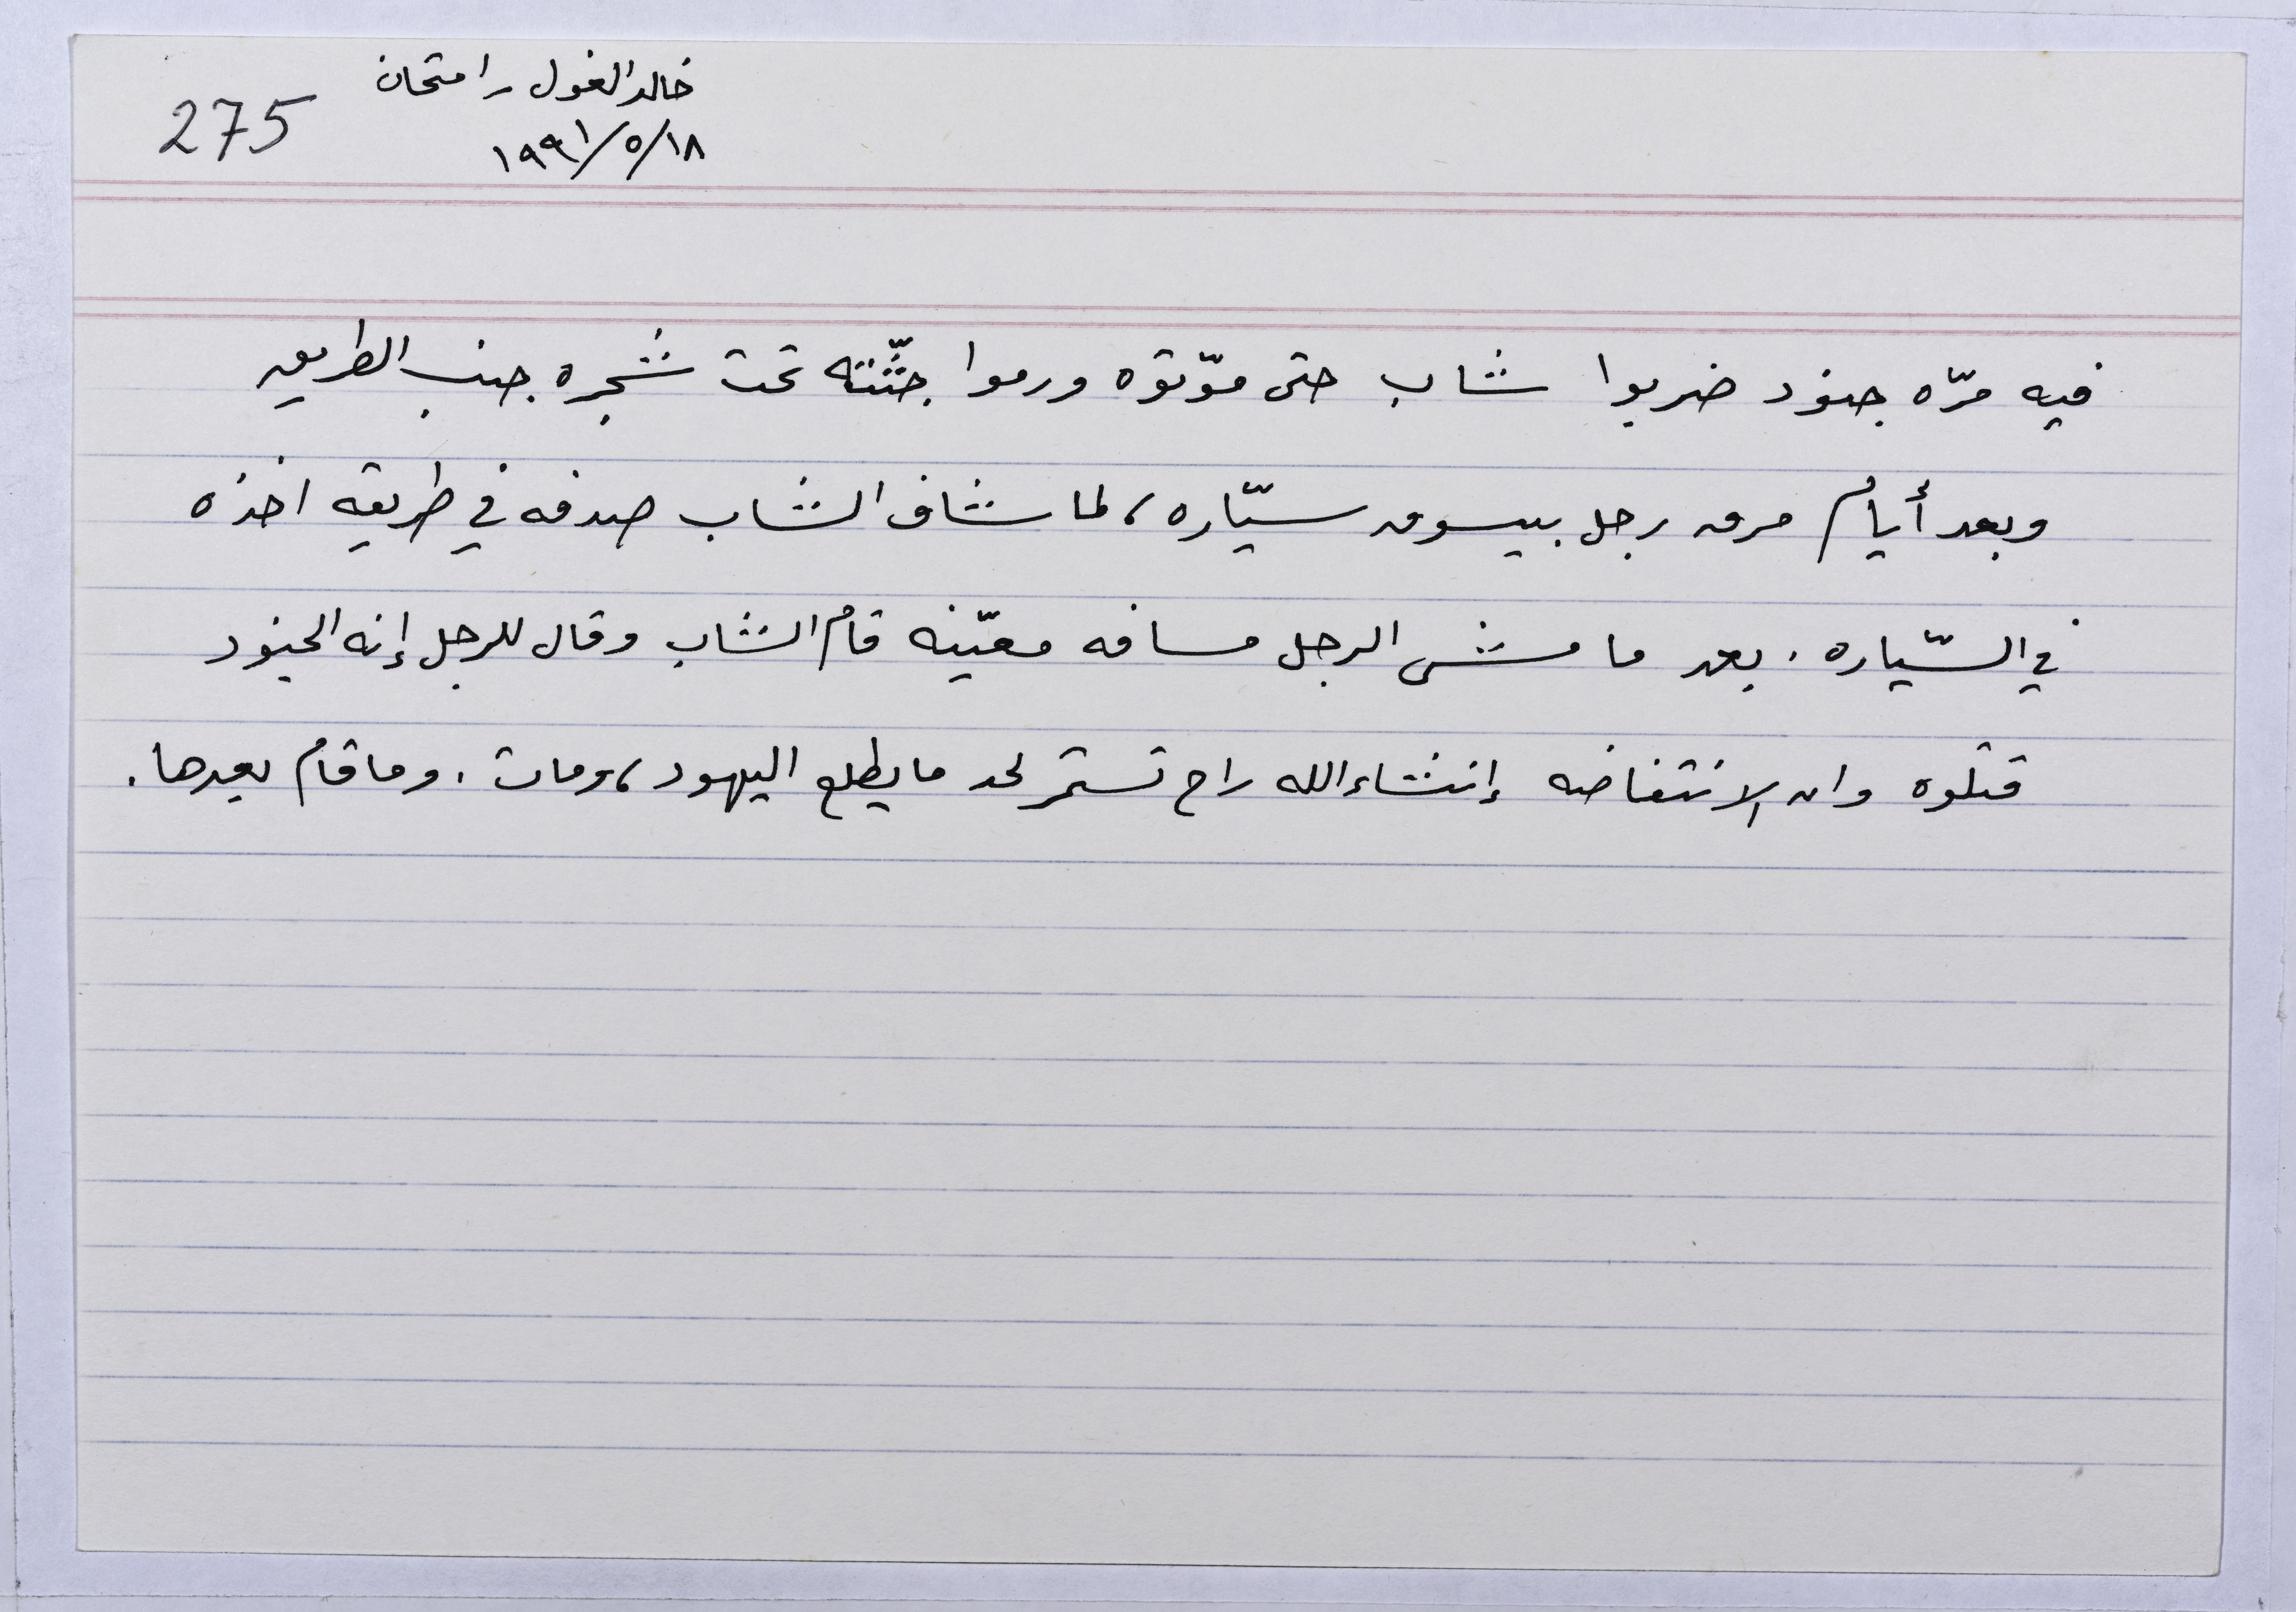 خالد الغول / امتحان
١٩٩١/٥/١٨
275
فيه مرّه جنود ضربوا شاب حتى موّتوه ورموا جثّته تحت شجره جنب الطريق
وبعد أيام مرق رجل بيسوق سيّاره، لما شاف الشاب صدفه في طريقه اخذه
في السّياره. بعد ما مشى الرجل مسافه معيّنه قام الشاب وقال للرجل إنه الجنود
قتلوه وان الانتفاضه إنشاءالله راح تستمر لحد ما يطلع اليهود، ومات. وما قام بعدها.